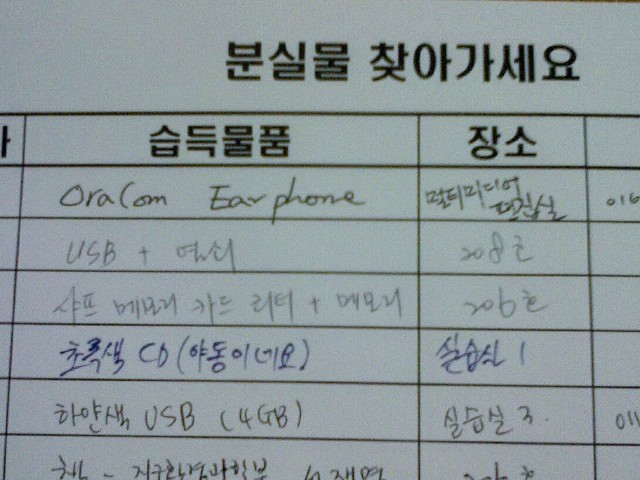 분실물 찾아가세요
습득물품 장소
OraCom Earphone 멀티미디어 편집실 016
USB + 열쇠 208호
샤프 메모리 카드 리더 + 메모리 206호
초록색 CD (야동이네요) 실습실 1
하얀색 USB (4GB) 실습실 3. 011
책 - 지구환경과학부